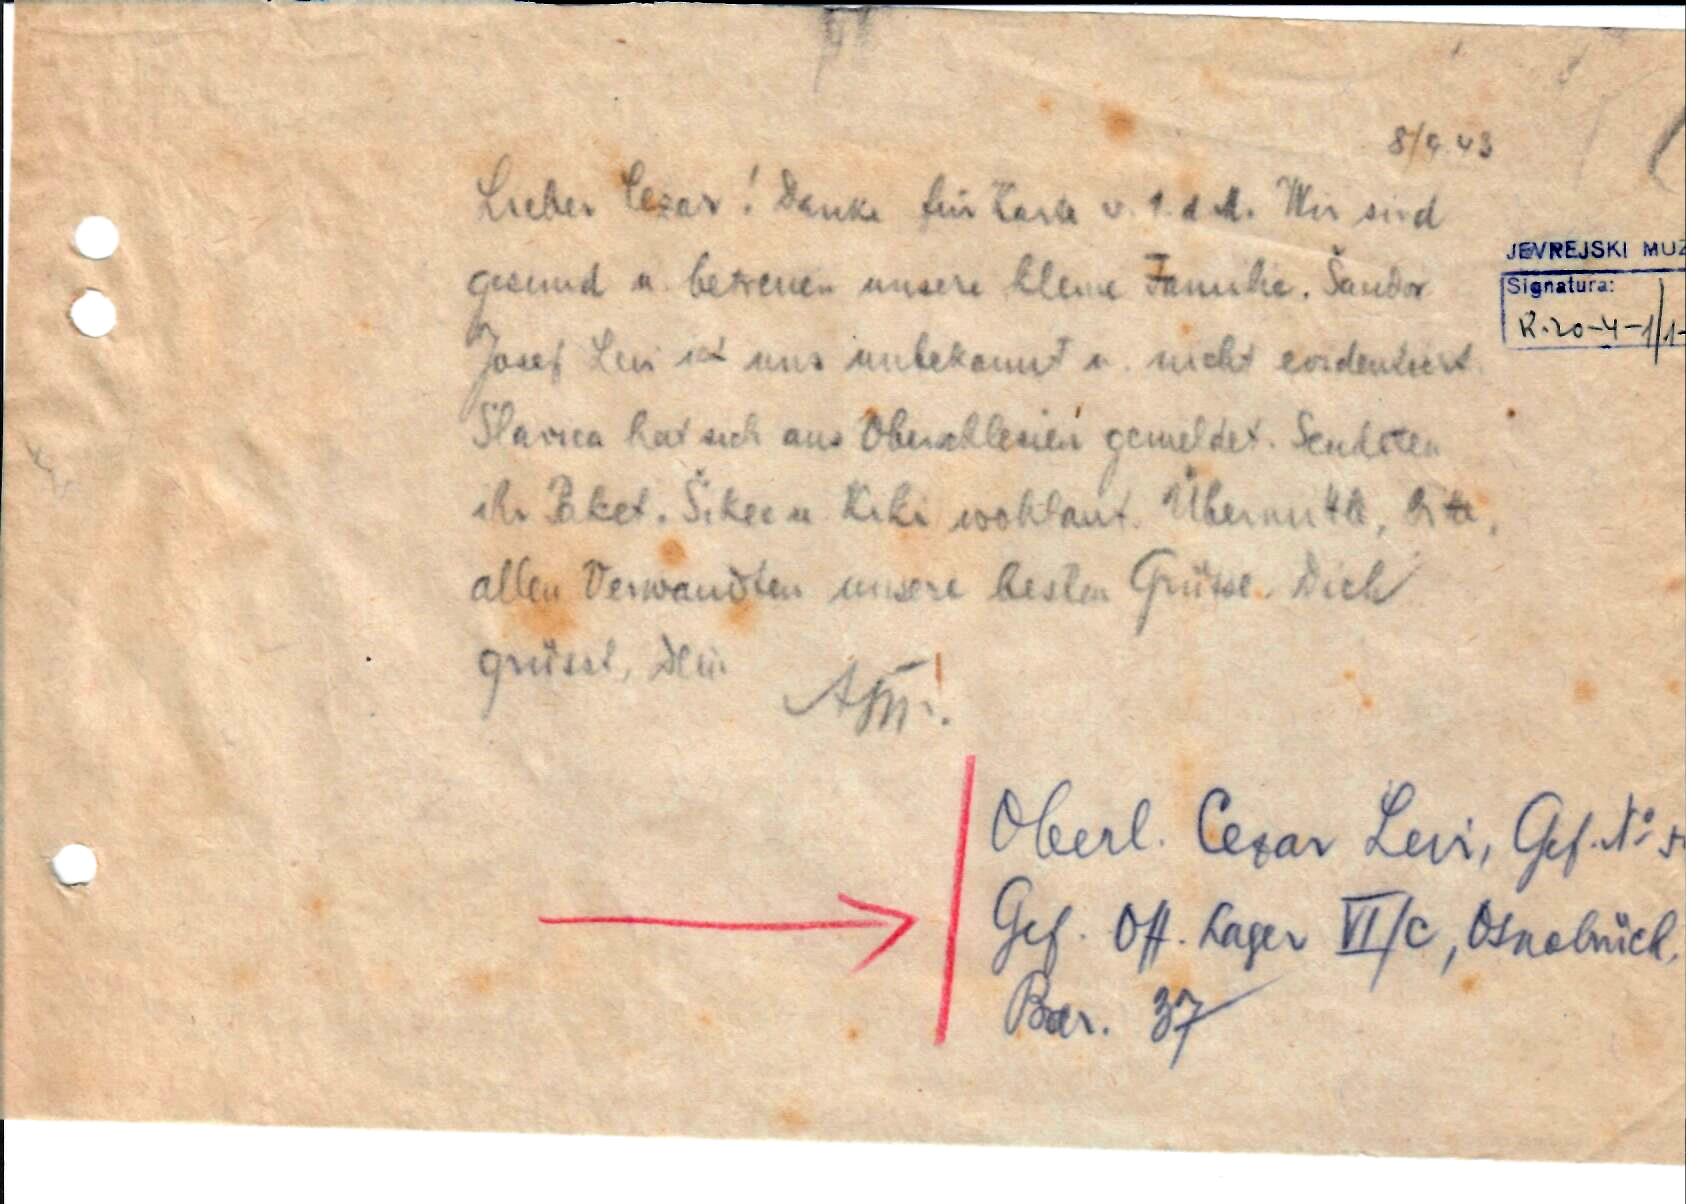 8/9. 43
Lieber Cezar! Danke für Karte v. 1. d. M. Wir sind
gesund u. betreuen unsere kleine Familie. Šandor
Josef Levi ist uns unbekannt u. nicht evidentiert.
Slavica hat sich aus Oberschlesien gemeldet. Sendeten
ihr Paket. Šikec u. Kiki wohlauf. Übermittle, bitte,
allen Verwandten unsere besten Grüsse. Dich
grüsst, Dein
JEVREJSKI MUZ
Signatura:
K.20-4-1/1-
Oberl. Cezar Levi, Gef. No 5
Gef. Off. Lager VI/C, Osnabrück,
Bar. 37